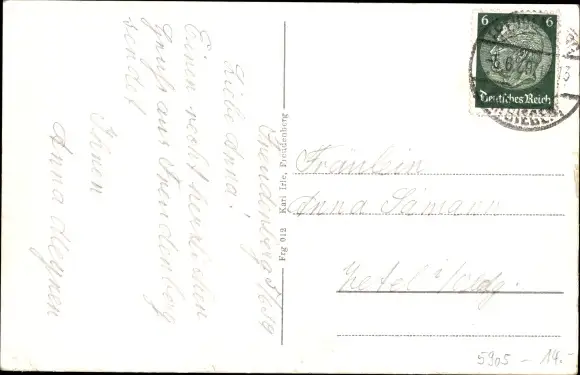 Freudenberg 5/6 39
Liebe Anna!
Einen recht herzlichen
Gruß aus Freudenberg
sendet
Ihnen
Anna
Frg 012 Karl Irle, Freudenberg
6 6
Deutsches Reich
SIEGEN
Fräulein
Anna Sämann
Zetel i/Oldg.
5905 - 14.-